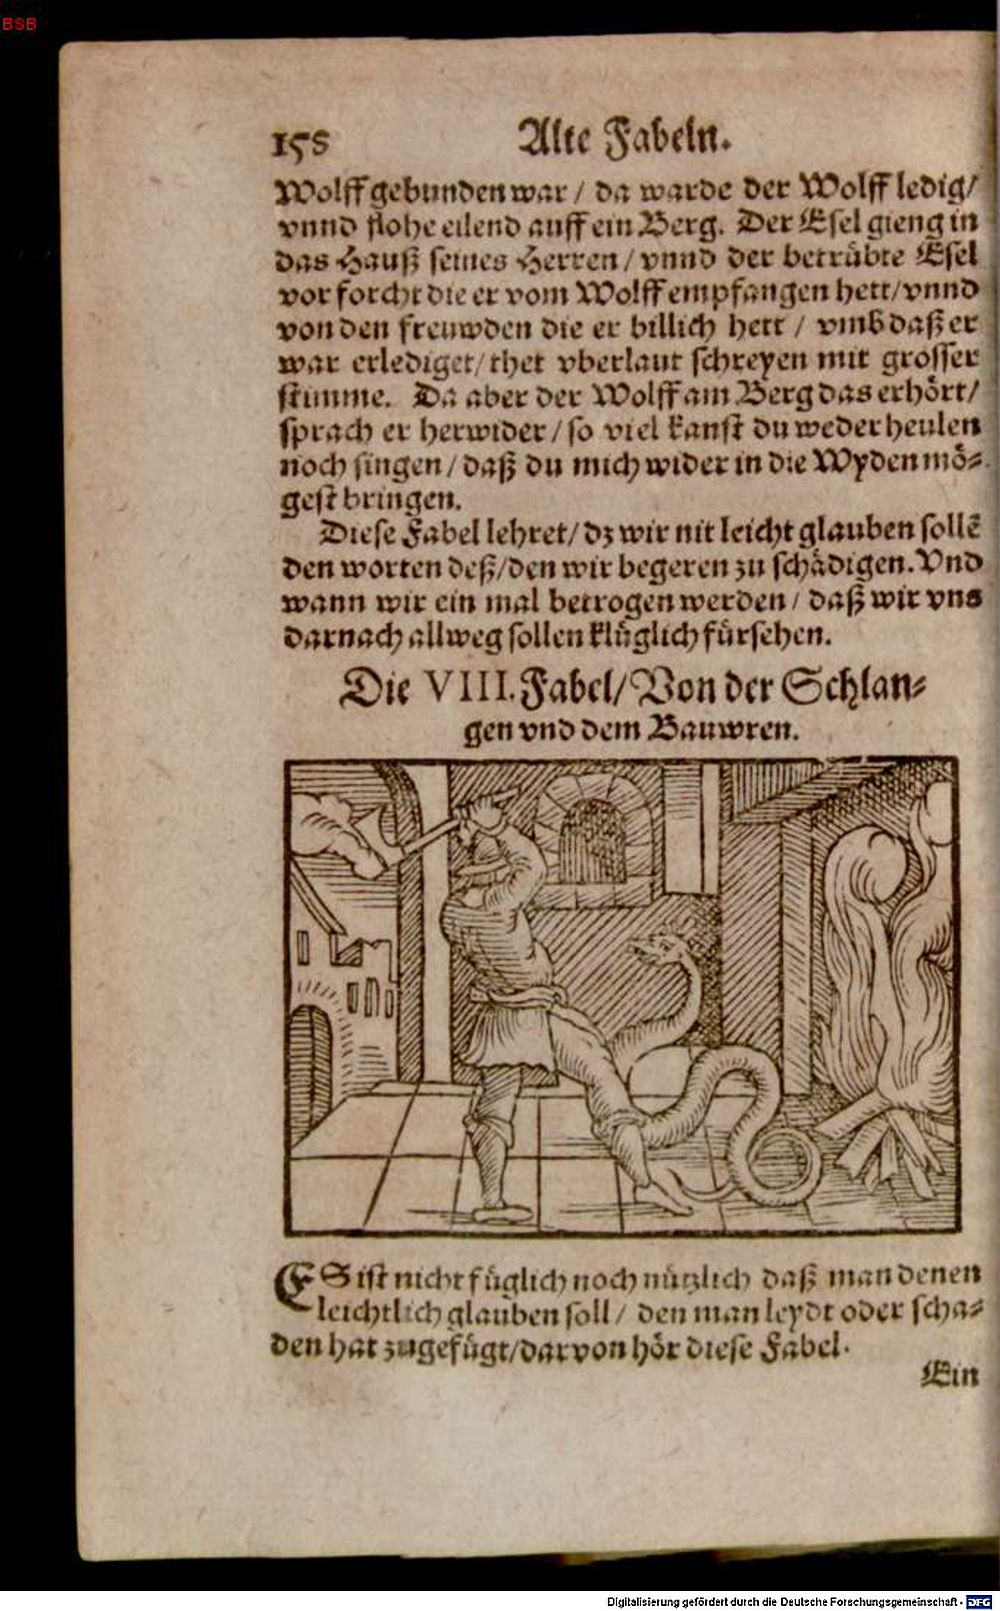 BSB
158 Alte Fabeln.
Wolff gebunden war / da warde der Wolff ledig/
vnnd flohe eilend auff ein Berg. Der Esel gieng in
das Hauß seines Herren / vnnd der betrübte Esel
vor forcht die er vom Wolff empfangen hett/vnnd
von den freuwden die er billich hett / vmb daß er
war erlediget/thet vberlaut schreyen mit grosser
stimme. Da aber der Wolff am Berg das erhört/
sprach er herwider / so viel kanst du weder heulen
noch singen / daß du mich wider in die Wyden mö⸗
gest bringen.
Diese Fabel lehret/ dz wir nit leicht glauben sollẽ
den worten deß/den wir begeren zu schädigen. Vnd
wann wir ein mal betrogen werden / daß wir vns
darnach allweg sollen klüglich fürsehen.
Die VIII. Fabel/ Von der Schlan⸗
gen vnd dem Bauwren.
ES ist nicht füglich noch nützlich daß man denen
leichtlich glauben soll / den man leydt oder scha⸗
den hat zugefügt/darvon hör diese Fabel.
Ein
Digitalisierung gefördert durch die Deutsche Forschungsgemeinschaft - DFG